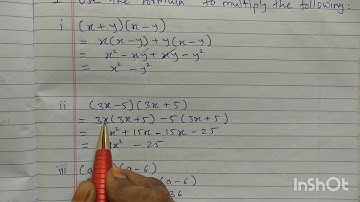 Use the formula to multiply the following:
i (x+y)(x-y)
= x(x-y)+y(x-y)
= x²-xy+xy-y²
= x²-y²
ii (3x-5)(3x+5)
= 3x(3x+5)-5(3x+5)
= x²+15x-15x-25
= x²-25
iii (a-6)
InShOt